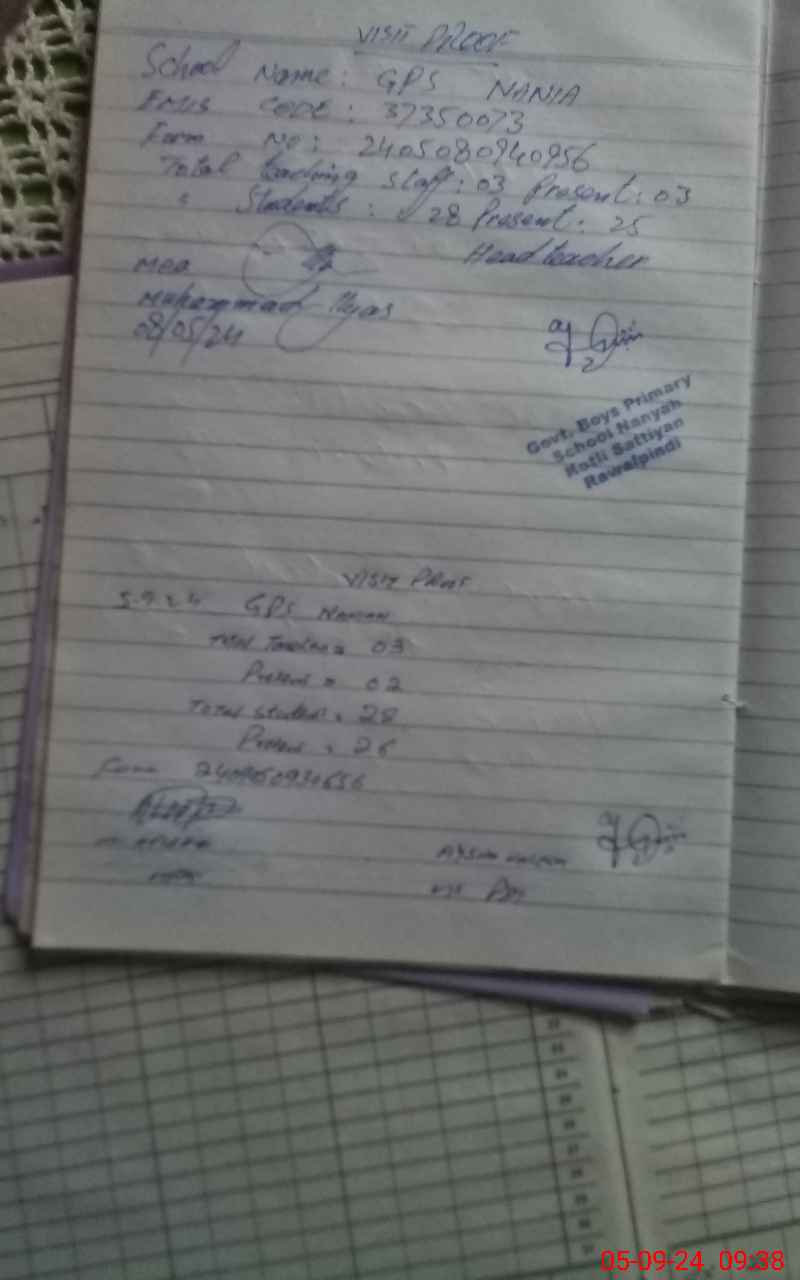 VISIT PROOF
School Name: GPS NANIA
EMIS CODE: 37350073
Form No: 2405080940956
Total teaching staff: 03 Present: 03
" Students: 28 Present: 25
MEA Head teacher
Muhammad Ilyas
08/05/24
Govt. Boys Primary
School Nanyah
Kotli Sattiyan
Rawalpindi
VISIT PROOF
5.9.24 GPS
Total Teacher = 03
Present = 02
Total Student = 28
Present = 26
Form
05-09-24 09:38